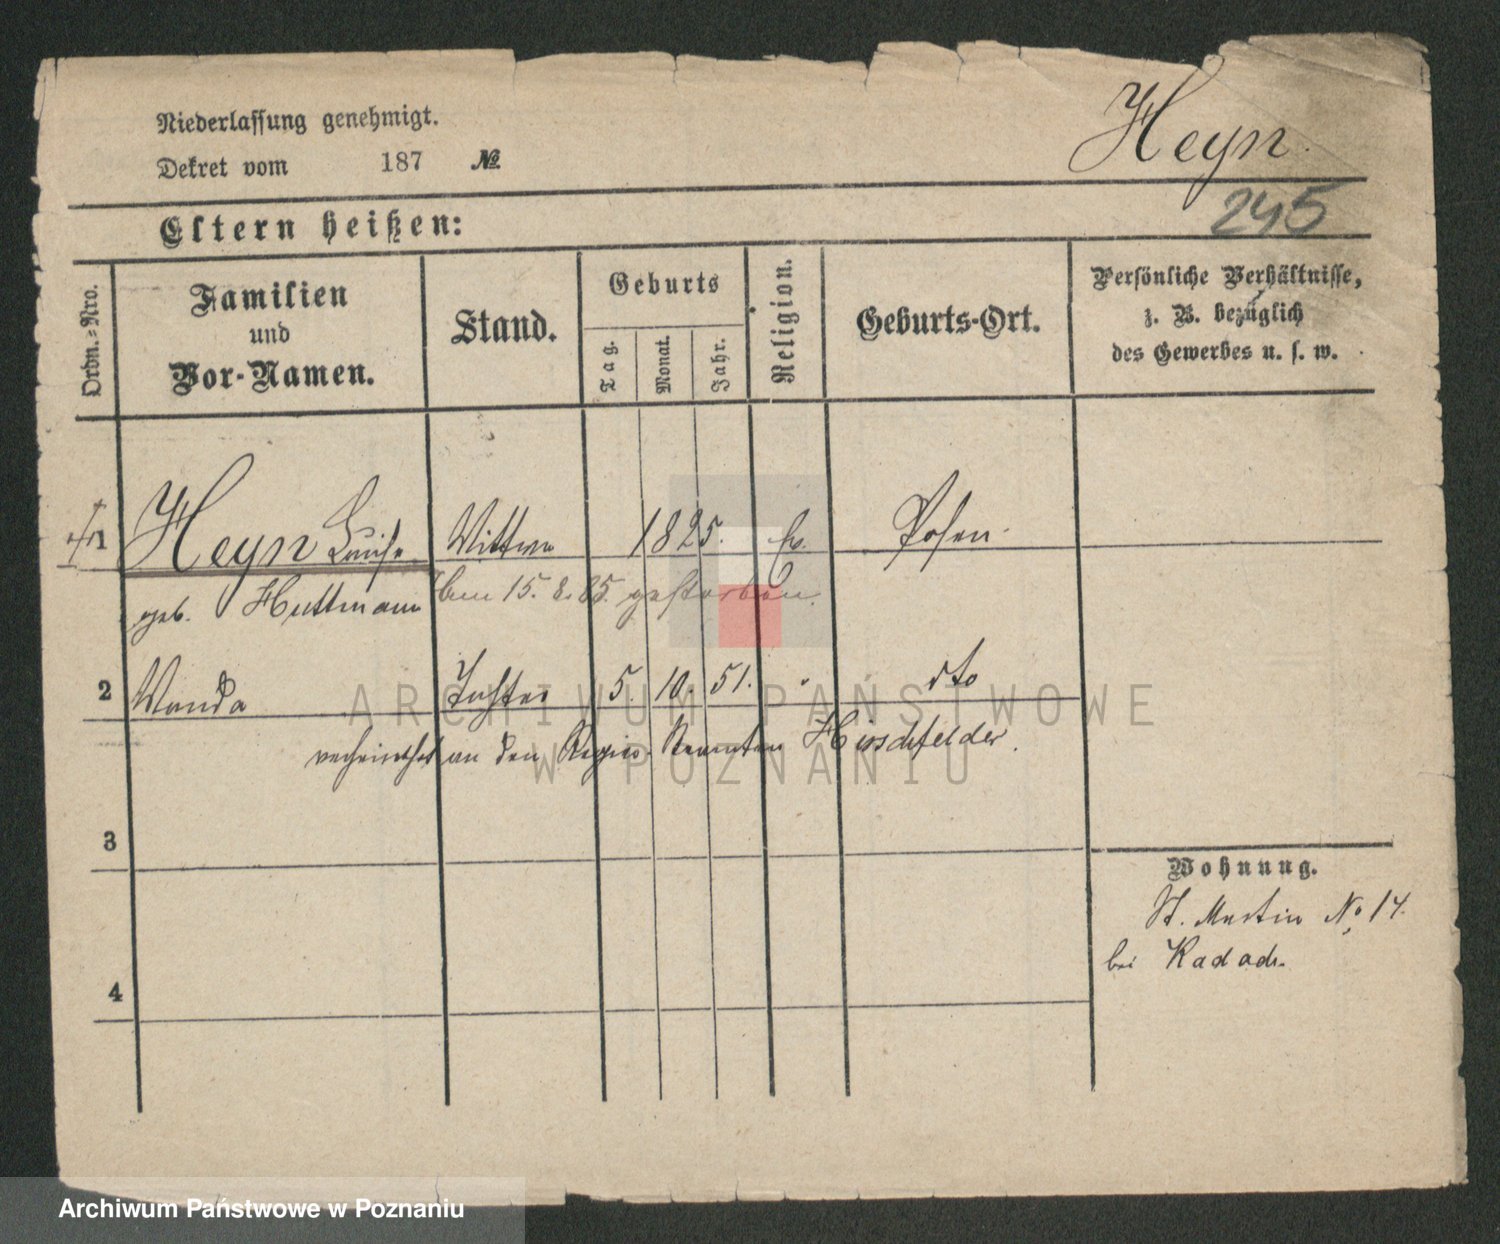 Niederlassung genehmigt.
Dekret vom 187 №
Heyn.
245
Eltern heißen:
Ordn.-Nro.
Familien
und
Vor-Namen.
Stand.
Geburts
Tag.
Monat.
Jahr.
Religion.
Geburts-Ort.
Persönliche Verhältnisse,
z. B. bezüglich
des Gewerbes u. s. w.
1 Heyn Luise Wittwe 1825. Ev. Posen.
geb. Huttmann Am 15. 8. 85. gestorben.
2 Wanda Tochter 5. 10. 51. " dto
verheirathet an den Regier. Beamten Hirschfelder.
3
4
Wohnung.
St. Martin No 14.
bei Kadach.
ARCHIWUM PAŃSTWOWE
W POZNANIU
Archiwum Państwowe w Poznaniu